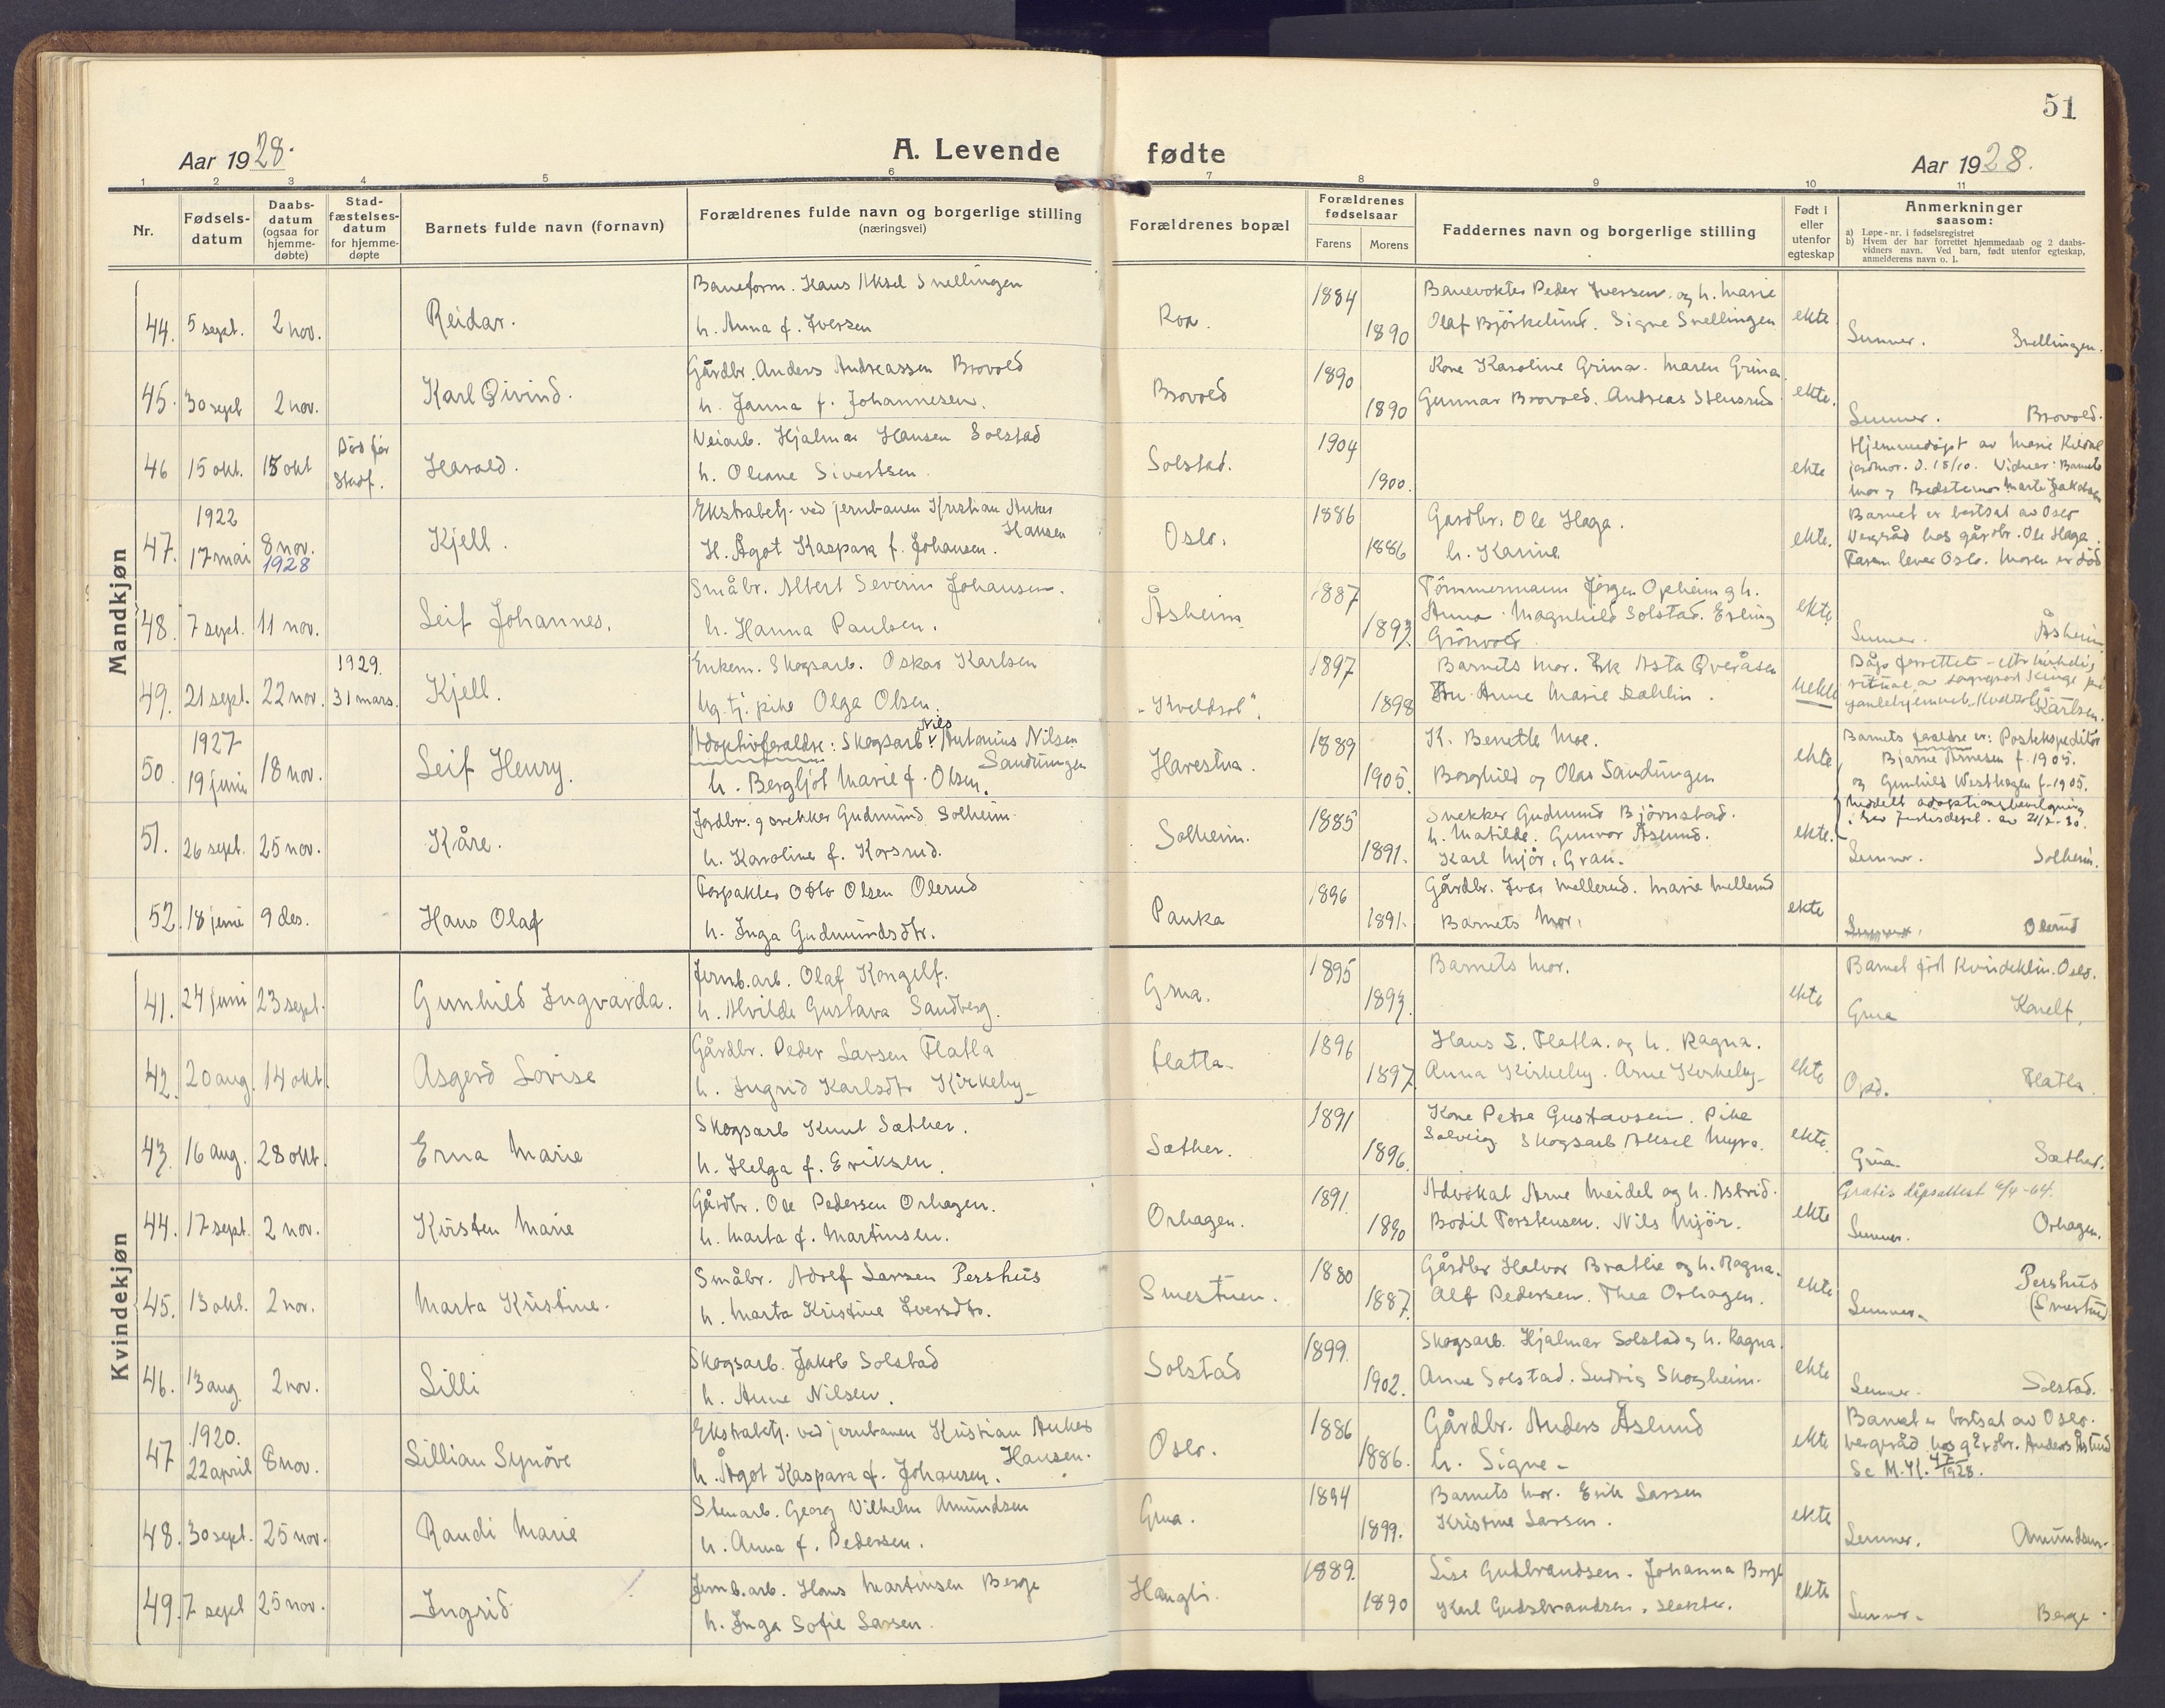 51
Aar 1928.
A. Levende fødte
Aar 1928.
1 2 3 4 5 6 7 8 9 10 11
Nr.
Fødsels-
datum
Daabs-
datum
(ogsaa for
hjemme-
døbte)
Stad-
fæstelses-
datum
for hjemme-
døpte
Barnets fulde navn (fornavn)
Forældrenes fulde navn og borgerlige stilling
(næringsvei)
Forældrenes bopæl
Forældrenes
fødselsaar
Farens Morens
Faddernes navn og borgerlige stilling
Født i
eller
utenfor
egteskap
Anmerkninger
saasom:
a) Løpe-nr. i fødselsregistret
b) Hvem der har forrettet hjemmedaab og 2 daabs-
vidners navn. Ved barn, født utenfor egteskap,
anmelderens navn o. l.
Mandkjøn
44. 5 sept. 2 nov. Reidar.
Baneform. Hans Aksel Snellingen
h. Anna f. Iversen
Roa. 1884 1890
Banevokter Peder Iversen og h. Marie
Olaf Björkelund. Signe Snellingen
ekte Lunner. Snellingen.
45. 30 sept 2 nov. Karl Øivind.
Gårdbr. Anders Andreassen Brovold
h. Janna f. Johannesen.
Brovold 1890 1890
Kone Karoline Grina. Maren Grina.
Gunnar Brovold. Andreas Stensrud
ekte. Lunner. Brovold.
46 15 okt. 15 okt Död før
Stadf.
Harald.
Veiarb. Hjalmar Hansen Solstad
h. Oleane Sivertsen.
Solstad. 1904 1900.
ekte
Hjemmedöpt av Marie
jordmor. d. 15/10. Vidner: Barnets
mor og Bedstemor Marte Jakobsen
47. 1922
17 mai 8 nov.
1928
Kjell.
Ekstrabetj. ved jernbanen Kristian Anker
Hansen
H. Ågot Kaspara f. Johansen.
Oslo. 1886 1886
Gardbr. Ole Haga.
h. Karine
ekte.
Barnet er bortsat av Oslo
Vergeråd hos gårdbr. Ole Haga.
Faren lever Oslo. Moren er död
48. 7 sept. 11 nov. Leif Johannes.
Småbr. Albert Severin Johansen.
h. Hanna Paulsen.
Åsheim 1887 1893.
Tömmermann Jörgen Opheim og h.
Anna. Magnhild Solstad. Erling
Grönvold
ekte Lunner. Åsheim
49. 21 sept. 22 nov. 1929.
31 mars.
Kjell.
Enkem. Skogsarb. Oskar Karlsen
Ug. tj. pike Olga Olsen.
"Kveldsol". 1897 1898
Barnets mor. Frk Asta Qveråsen
Fru Anne Marie Dæhlin.
uekte
Dåp forrettet etter kirkelig
ritual av sogneprest Kinge på
gamlehjemmet "Kveldsol"
Karlsen.
50. 1927
19 juni 18 nov. Leif Henry.
Adoptivforældre: Skogsarb. Nils Antonius Nilsen
Sandungen
h. Bergljot Marie f. Olsen.
Harestua. 1889 1905.
K. Benette Moe.
Borghild og Olav Sandungen
ekte
Barnets foreldre er: Postekspeditör
Bjarne Arnesen f. 1905.
og Gunhild Westhagen f. 1905.
51. 26 sept. 25 nov. Kåre.
Jordbr. og snekker Gudmund Solheim.
h. Karoline f. Korsrud.
Solheim. 1885 1891.
Snekker Gudmund Björnstad.
h. Matilde. Gunvor Åslund.
Karl Mjör. Gran.
ekte.
Meddelt adoptionsbevilgning
Lunner. Solheim.
52. 18 juni 9 des. Hans Olaf
Forpakter Otto Olsen Olerud
h. Inga Gudmundsdtr.
Pauka 1896 1891.
Gårdbr. Ivar Mellerud. Marie Mellerud
Barnets Mor.
ekte Olerud
Kvindekjøn
41. 24 juni 23 sept. Gunhild Ingvarda.
Jernb.arb. Olaf Kongelf.
h. Alvilde Gustava Sandberg.
Grua. 1895 1893.
Barnets Mor.
ekte
Barnet födt Kvindeklin. Oslo.
Grua
42. 20 aug. 14 okt. Asgerd Lovise
Gårdbr. Peder Larsen Flatla
h. Ingrid Karlsdtr Kirkeby
Flatla. 1896 1897
Hans L. Flatla. og h. Ragna.
Anna Kirkeby. Arne Kirkeby
ekte Opd. Flatla.
43. 16 aug. 28 okt. Erna Marie
Skogsarb Knut Sæther.
h. Helga f. Eriksen.
Sæther. 1891 1896.
Kone Petra Gustavsen. Pike
Solveig Skogsarb Aksel Myra.
ekte. Grua. Sæther.
44. 17 sept. 2 nov. Kirsten Marie
Gårdbr. Ole Pedersen Orhagen.
h. Marta f. Martinsen.
Orhagen. 1891. 1890
Advokat Arne Meidel og h. Astrid.
Bodil Torstensen. Nils Mjör.
ekte
Gratis dåpsattest 6/4-64.
Lunner. Orhagen.
45. 13 okt. 2 nov. Marta Kristine.
Småbr. Adolf Larsen Pershus
h. Marta Kristine Iversdtr.
Smestuen. 1880 1887.
Gårdbr Halvor Bratlie og h. Ragna.
Alf Pedersen. Thea Orhagen.
ekte
Lunner. Pershus
(Smestuen
46. 13 aug. 2 nov. Lilli
Skogsarb. Jakob Solstad
h. Anne Nilsen.
Solstad 1899. 1902.
Skogsarb. Hjalmar Solstad og h. Ragna.
Anne Solstad. Ludvig Skogheim.
ekte Lunner. Solstad.
47 1920.
22 april 8 nov. Lillian Synöve
Ekstrabetj. ved jernbanen Kristian Anker
Hansen.
h. Ågot Kaspara f. Johansen.
Oslo. 1886 1886.
Gårdbr. Anders Åslund
h. Signe
ekte
Barnet er bortsat av Oslo.
vergeråd hos gårdbr. Anders Åslund
Se M.Kj. 47/1928.
48. 30 sept. 25 nov. Randi Marie
Stenarb. Georg Vilhelm Amundsen
h. Anna f. Pedersen.
Grua. 1894 1899.
Barnets mor. Erik Larsen
Kristine Larsen.
ekte Lunner. Amundsen.
49. 7 sept 25 nov. Ingrid
Jernb.arb. Hans Martinsen Berge
h. Inga Sofie Larsen.
Haugli. 1889. 1890
Lise Gudbrandsen. Johanna Berge
Karl Gudbrandsen.
ekte Lunner. Berge